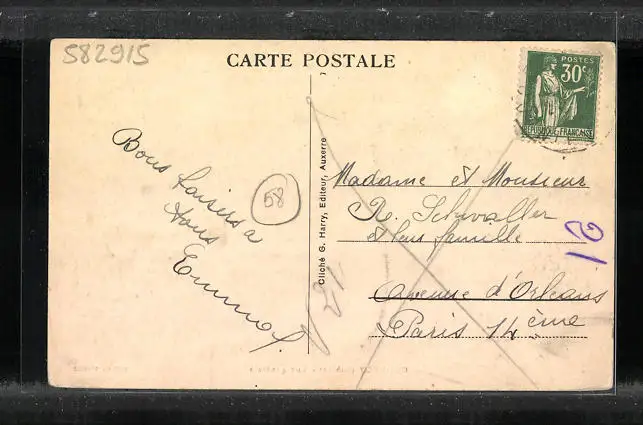 582915
CARTE POSTALE
POSTES
30c
REPUBLIQUE FRANÇAISE
Bons baisers a
tous
Emma
58
Cliché G. Harry, Editeur, Auxerre
Madame et Monsieur
R. Schwaller
et leur famille
Avenue d'Orleans
Paris 14 ème
21